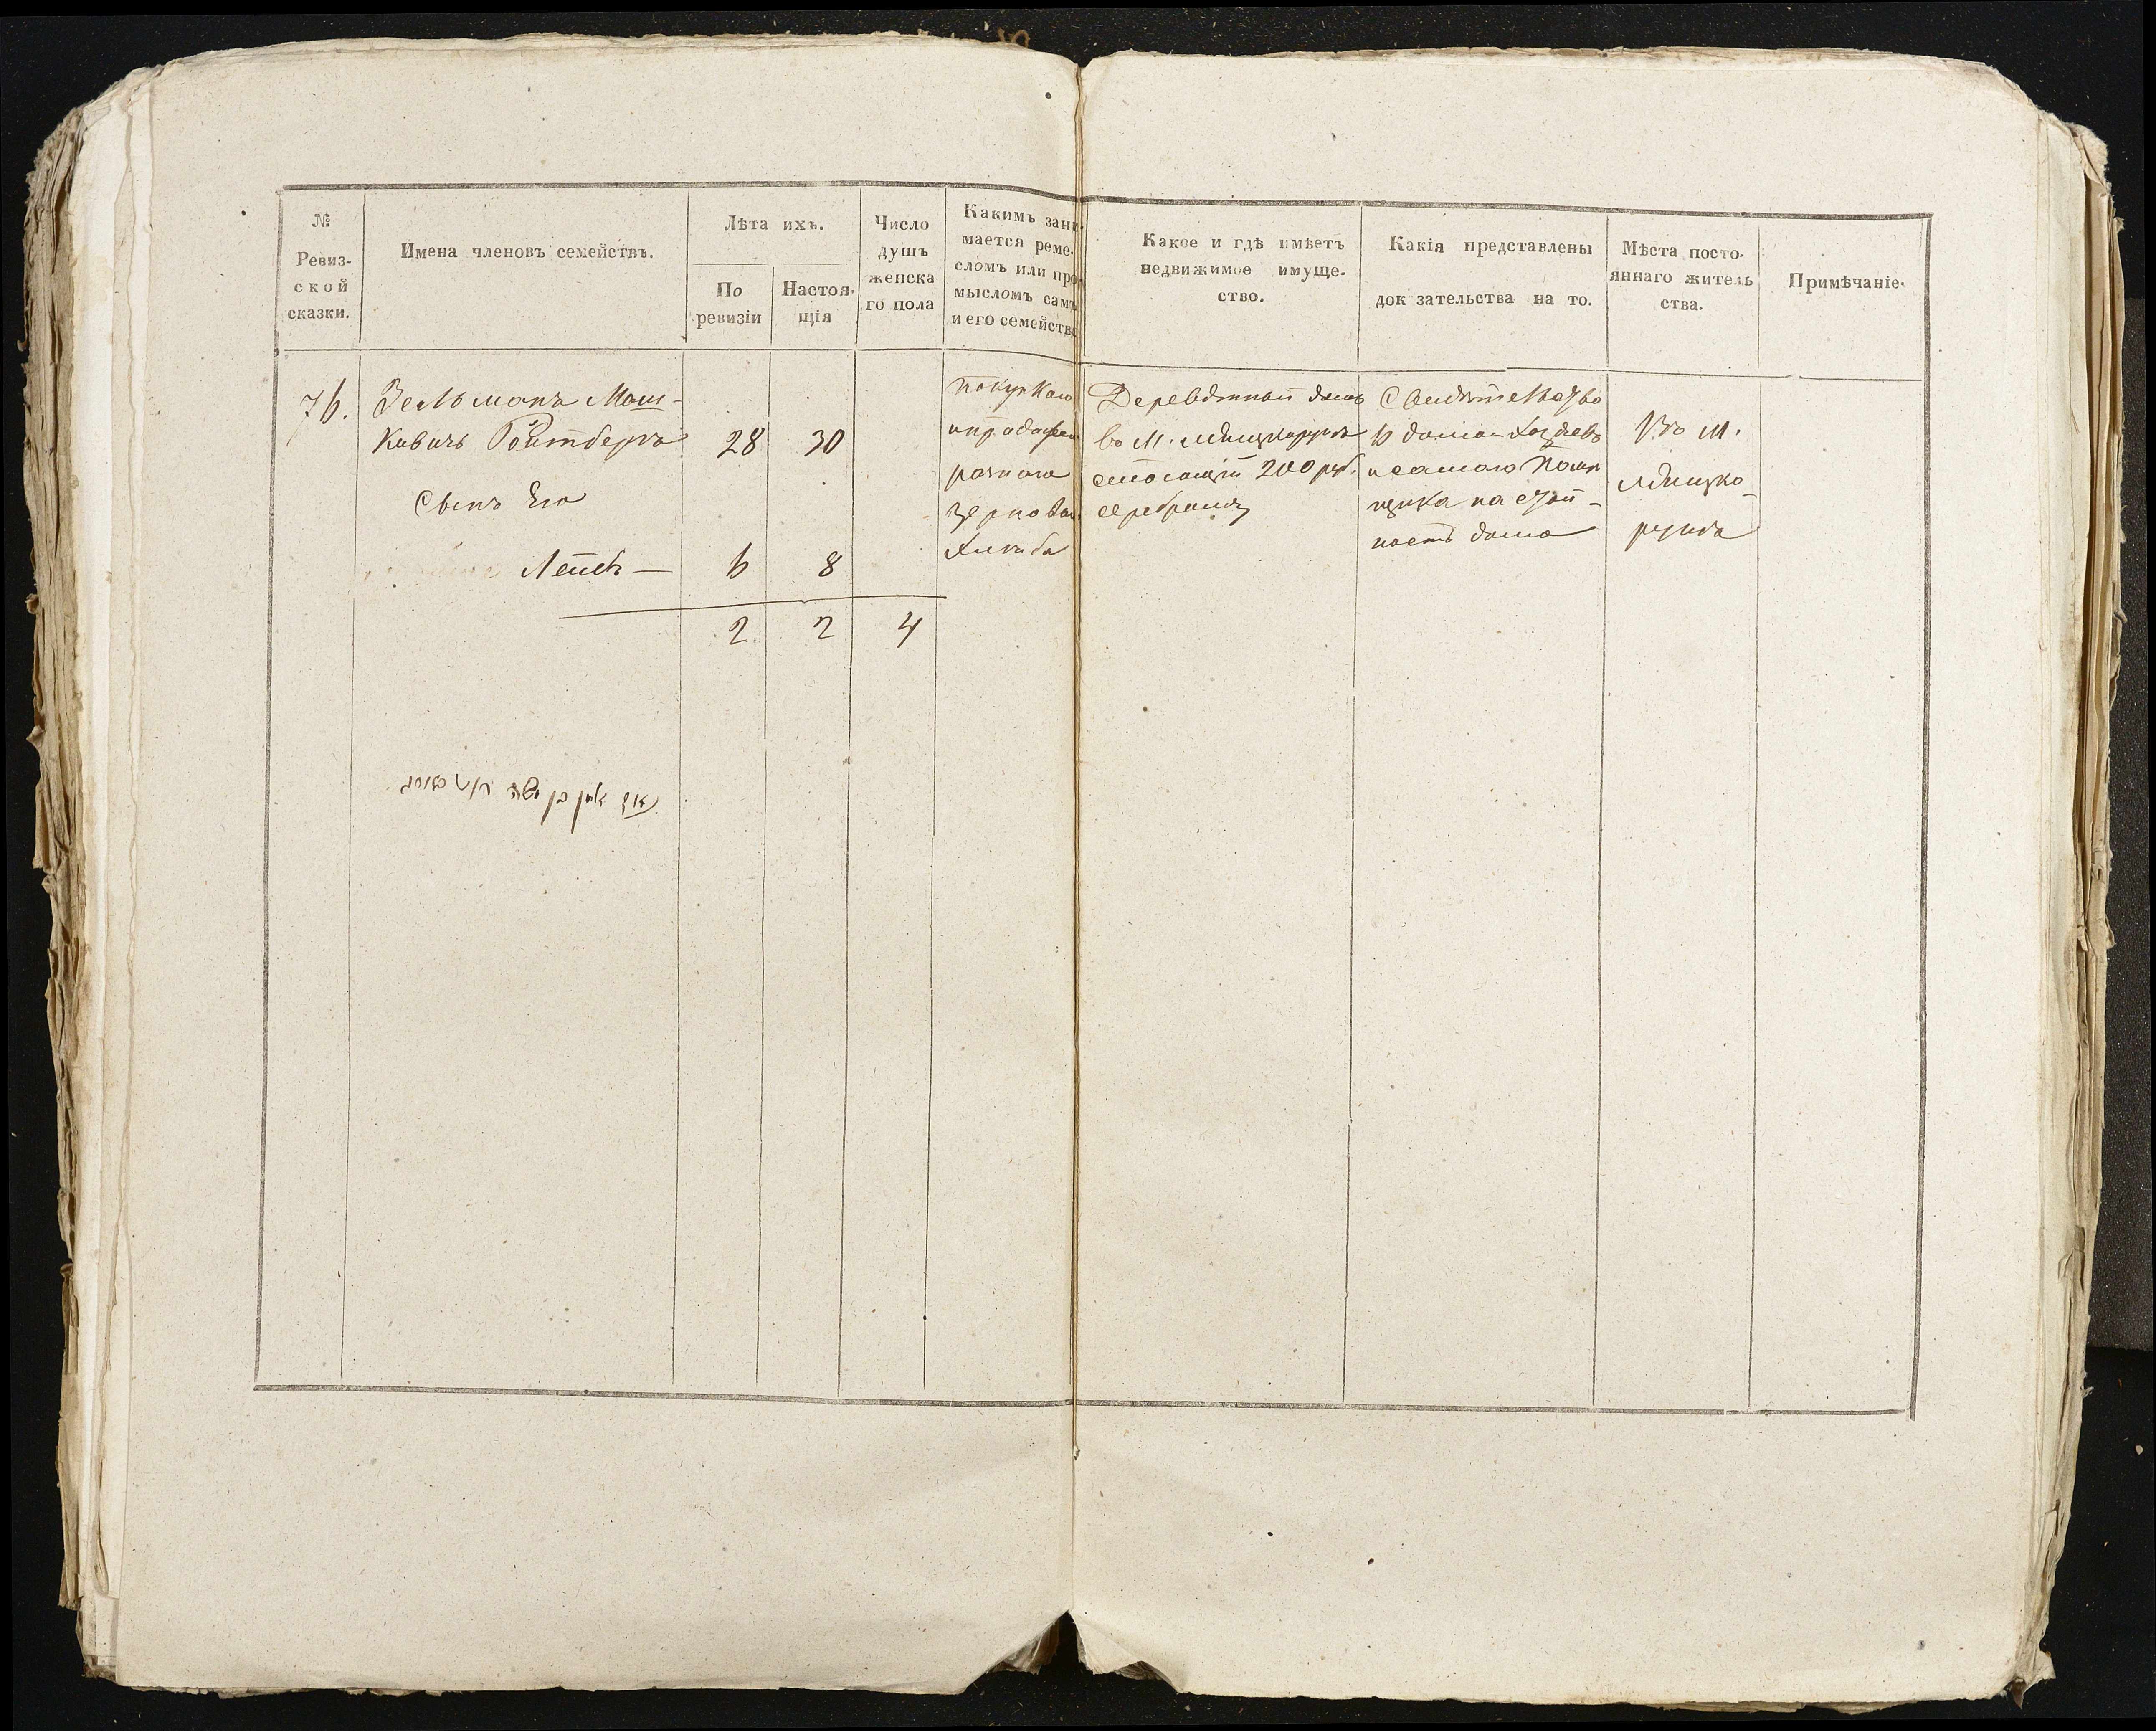 №
Ревиз-
ской
сказки.
Имена членовъ семействъ.
Лѣта ихъ.
По
ревизіи
Настоя-
щія
Число
душъ
женска
го пола
Какимъ зани-
мается реме-
сломъ или про-
мысломъ самъ
и его семейство
Какое и гдѣ имѣетъ
недвижимое имуще-
ство.
Какія представлены
док зательства на то.
Мѣста посто-
яннаго житель
ства.
Примѣчаніе.
76.
Зельманъ Мош-
ковичь Ройтбергъ
28
30
Сынъ Его
Лейбъ —
6
8
2
2
4
покупкою
и продажею
разнаго
зерноваго
хлѣба
Деревянный домъ
въ М.
стоющій 200 руб.
серебромъ
Свидѣтельство
6 домохозяевъ
и самого помѣ
щика на стои-
мость дома
Въ М.
בן משה